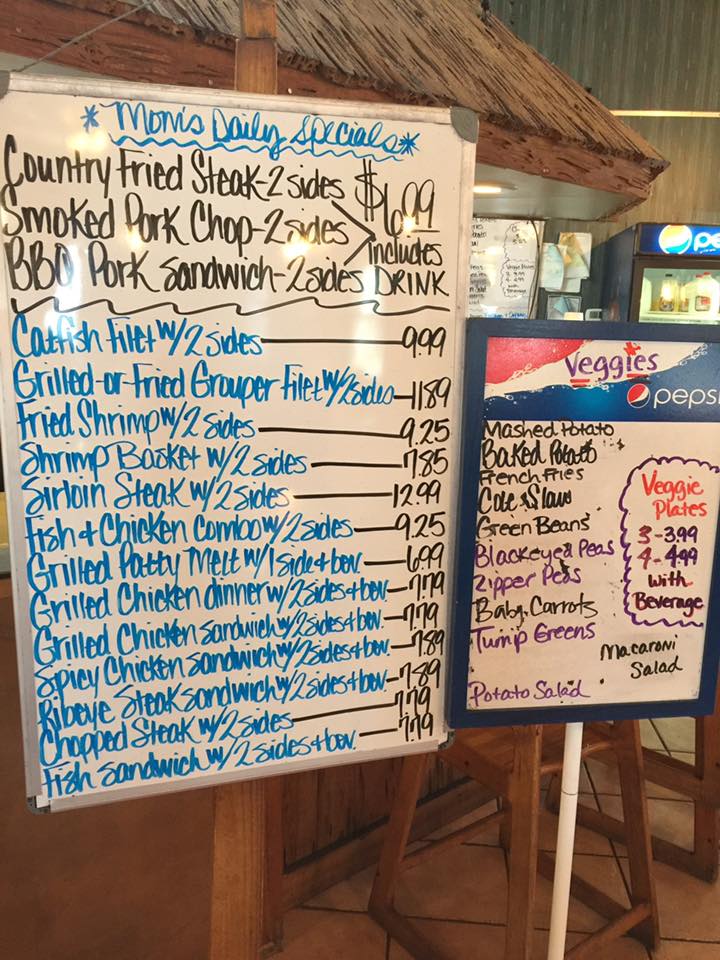 *Mom's Daily Specials*
Country Fried Steak-2 sides
Smoked Pork Chop-2 sides
BBQ Pork Sandwich-2 sides
$6.99
Includes
DRINK
Catfish Filet w/2 sides — 9.99
Grilled-or-Fried Grouper Filet w/2 sides — 11.89
Fried Shrimp w/ 2 sides — 9.25
Shrimp Basket w/2 sides — 7.85
Sirloin Steak w/2 sides — 12.99
Fish + Chicken Combo w/2 sides — 9.25
Grilled Patty Melt w/1 side + bev. — 6.99
Grilled Chicken dinner w/2sides+bev — 7.79
Grilled Chicken sandwich w/2sides+bev. — 7.79
Spicy Chicken sandwich w/2sides+bev. — 7.89
Ribeye Steak sandwich w/2sides+bev. — 7.89
Chopped Steak w/2 sides — 7.79
Fish sandwich w/2 sides + bev. — 7.79
Veggies
pepsi
Mashed Potato
Baked Potato
French Fries
Cole Slaw
Green Beans
Blackeyed Peas
Zipper Peas
Baby Carrots
Turnip Greens
Macaroni
Salad
Potato Salad
Veggie
Plates
3-3.99
4-4.99
with
Beverage
pe